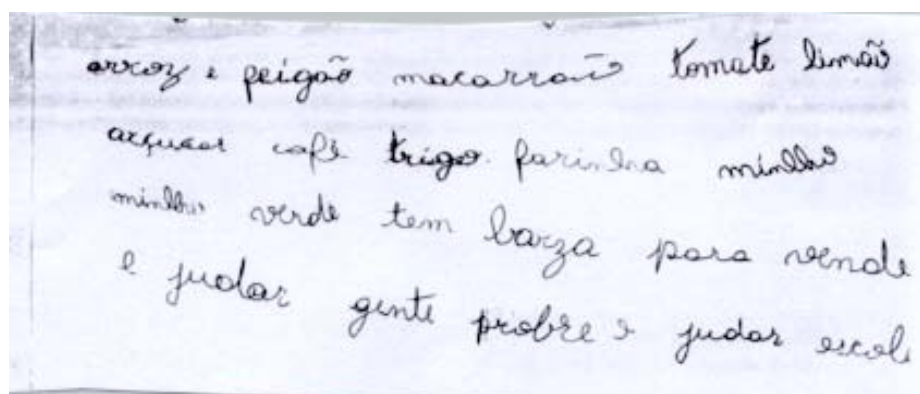 arroz e peigão macarrão tomate limão
arçucar café trigo farinha minlho
minlho verde tem barza para vende
e judar gente probre e judar escol